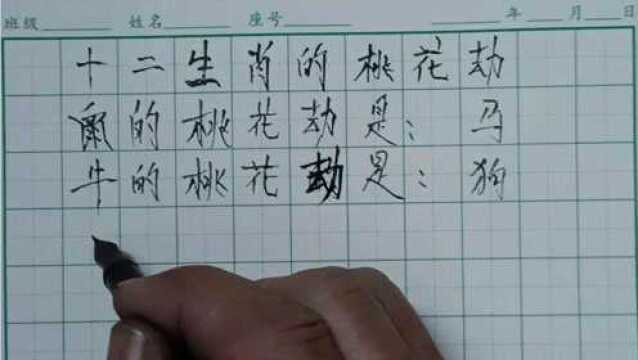 班级 姓名 座号 年 月 日
十二生肖的桃花劫
鼠的桃花劫是：马
牛的桃花劫是：狗